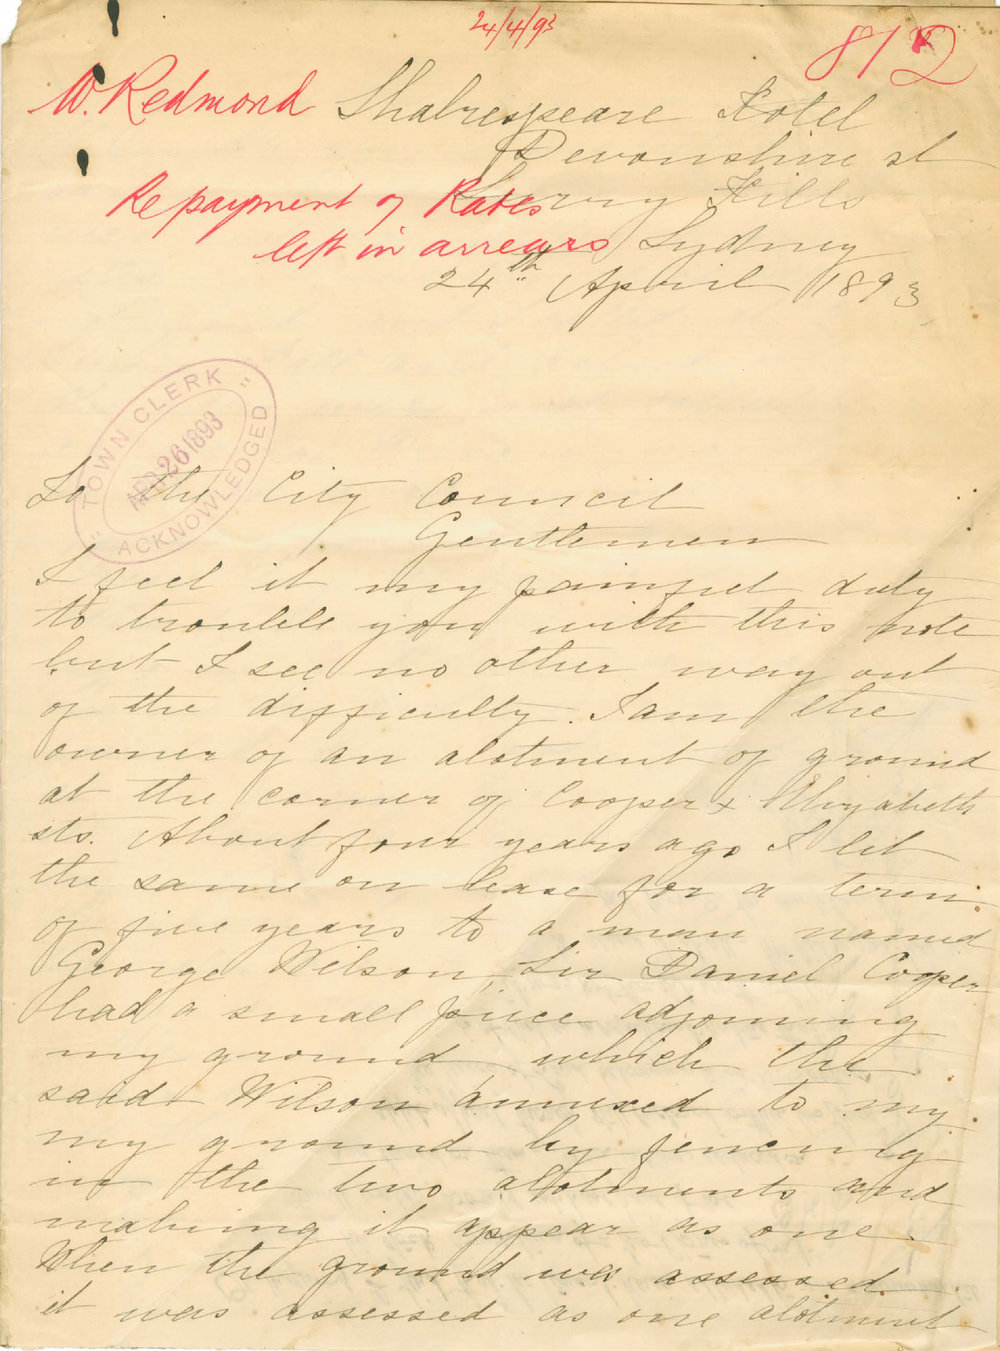 24/4/93
812
W. Redmond Shakespeare Hotel
Devonshire st
Surry Hills
Repayment of Rates
left in arrears Sydney
24th April 1893
"TOWN CLERK"
APR 26 1893
ACKNOWLEDGED
To the City Council
Gentlemen
I feel it my painful duty
to trouble you with this note
but I see no other way out
of the difficulty. I am the
owner of an alotment of ground
at the corner of Cooper & Elizabeth
sts. About four years ago I let
the same on lease for a term
of five years to a man named
George Wilson, Sir Daniel Cooper
had a small piece adjoining
my ground which the
said Wilson annexed to my
my ground by fencing
in the two alotments and
making it appear as one.
When the ground was assessed
it was assessed as one alotment